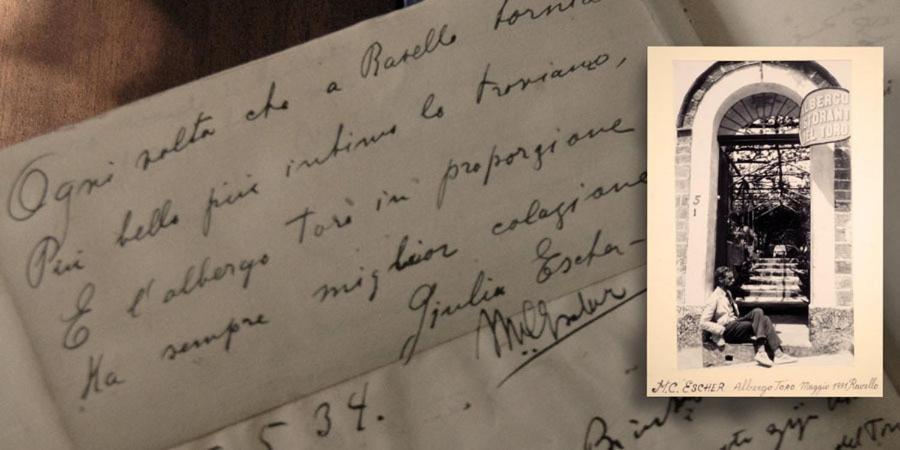 Ogni volta che a Ravello tornia
Più bello più intimo lo troviamo,
E l'albergo Toro in proporzione
Ha sempre miglior colazione
Giulia Escher-
MCEscher
5 34.
ALBERGO
STORANT
DEL TORO
5
1
M.C. ESCHER Albergo Toro Maggio 1931, Ravello